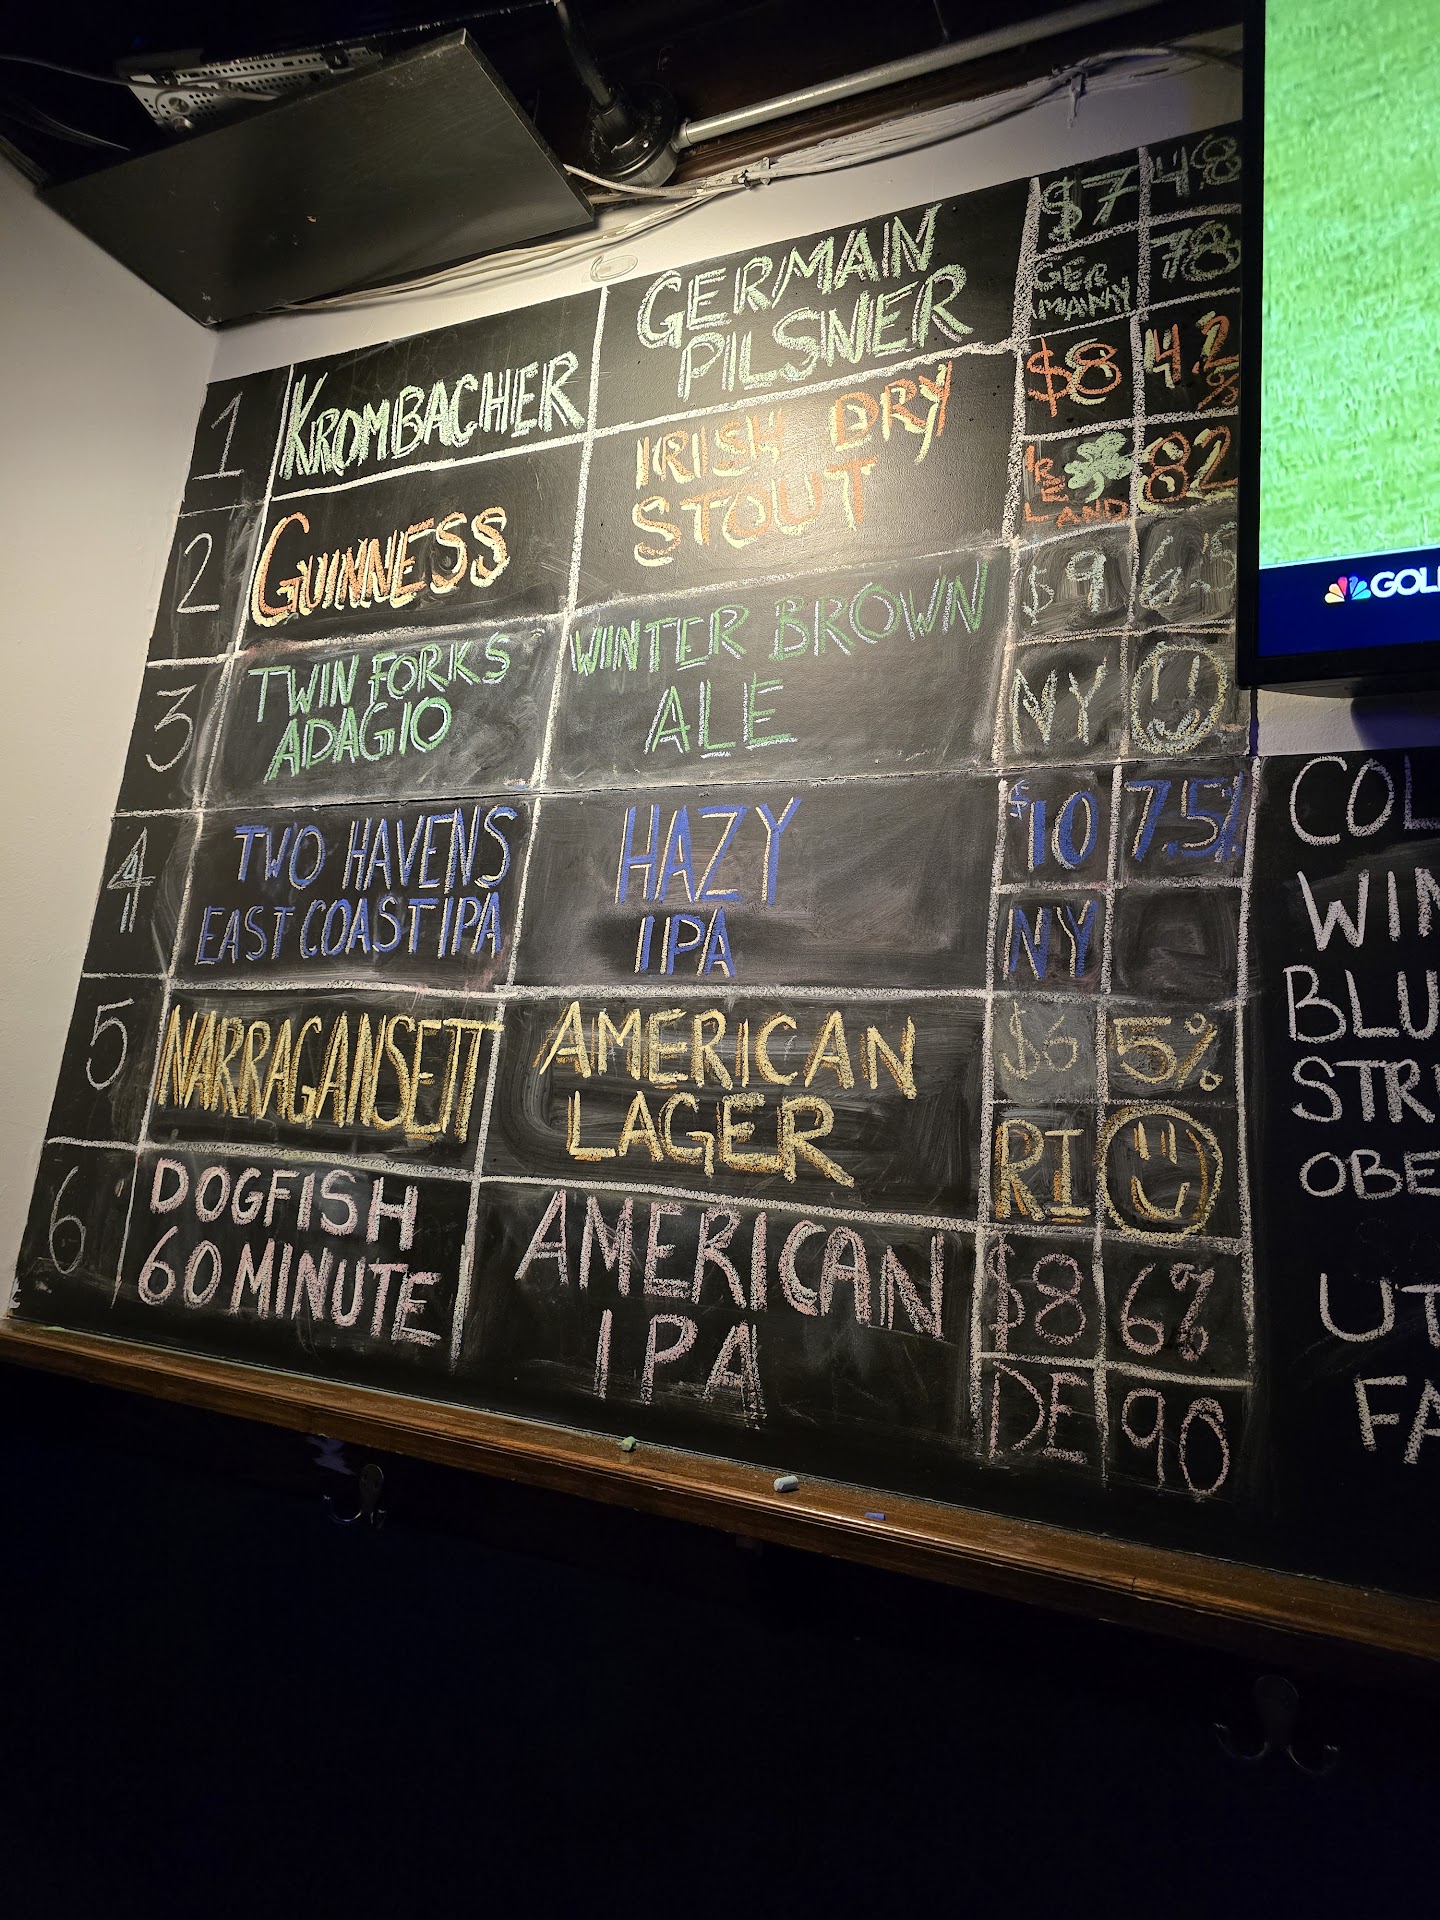 1
KROMBACHER
GERMAN
PILSNER
$7
48
GER
MANY
78
2
GUINNESS
IRISH DRY
STOUT
$8
4.2
%
IRE
LAND
82
3
TWIN FORKS
ADAGIO
WINTER BROWN
ALE
$9
6.5
NY
4
TWO HAVENS
EAST COAST IPA
HAZY
IPA
$10
7.5%
NY
5
NARRAGANSETT
AMERICAN
LAGER
$6
5%
RI
6
DOGFISH
60 MINUTE
AMERICAN
IPA
$8
6%
DE
90
GOL
COL
WIN
BLU
STR
OBE
UT
FA